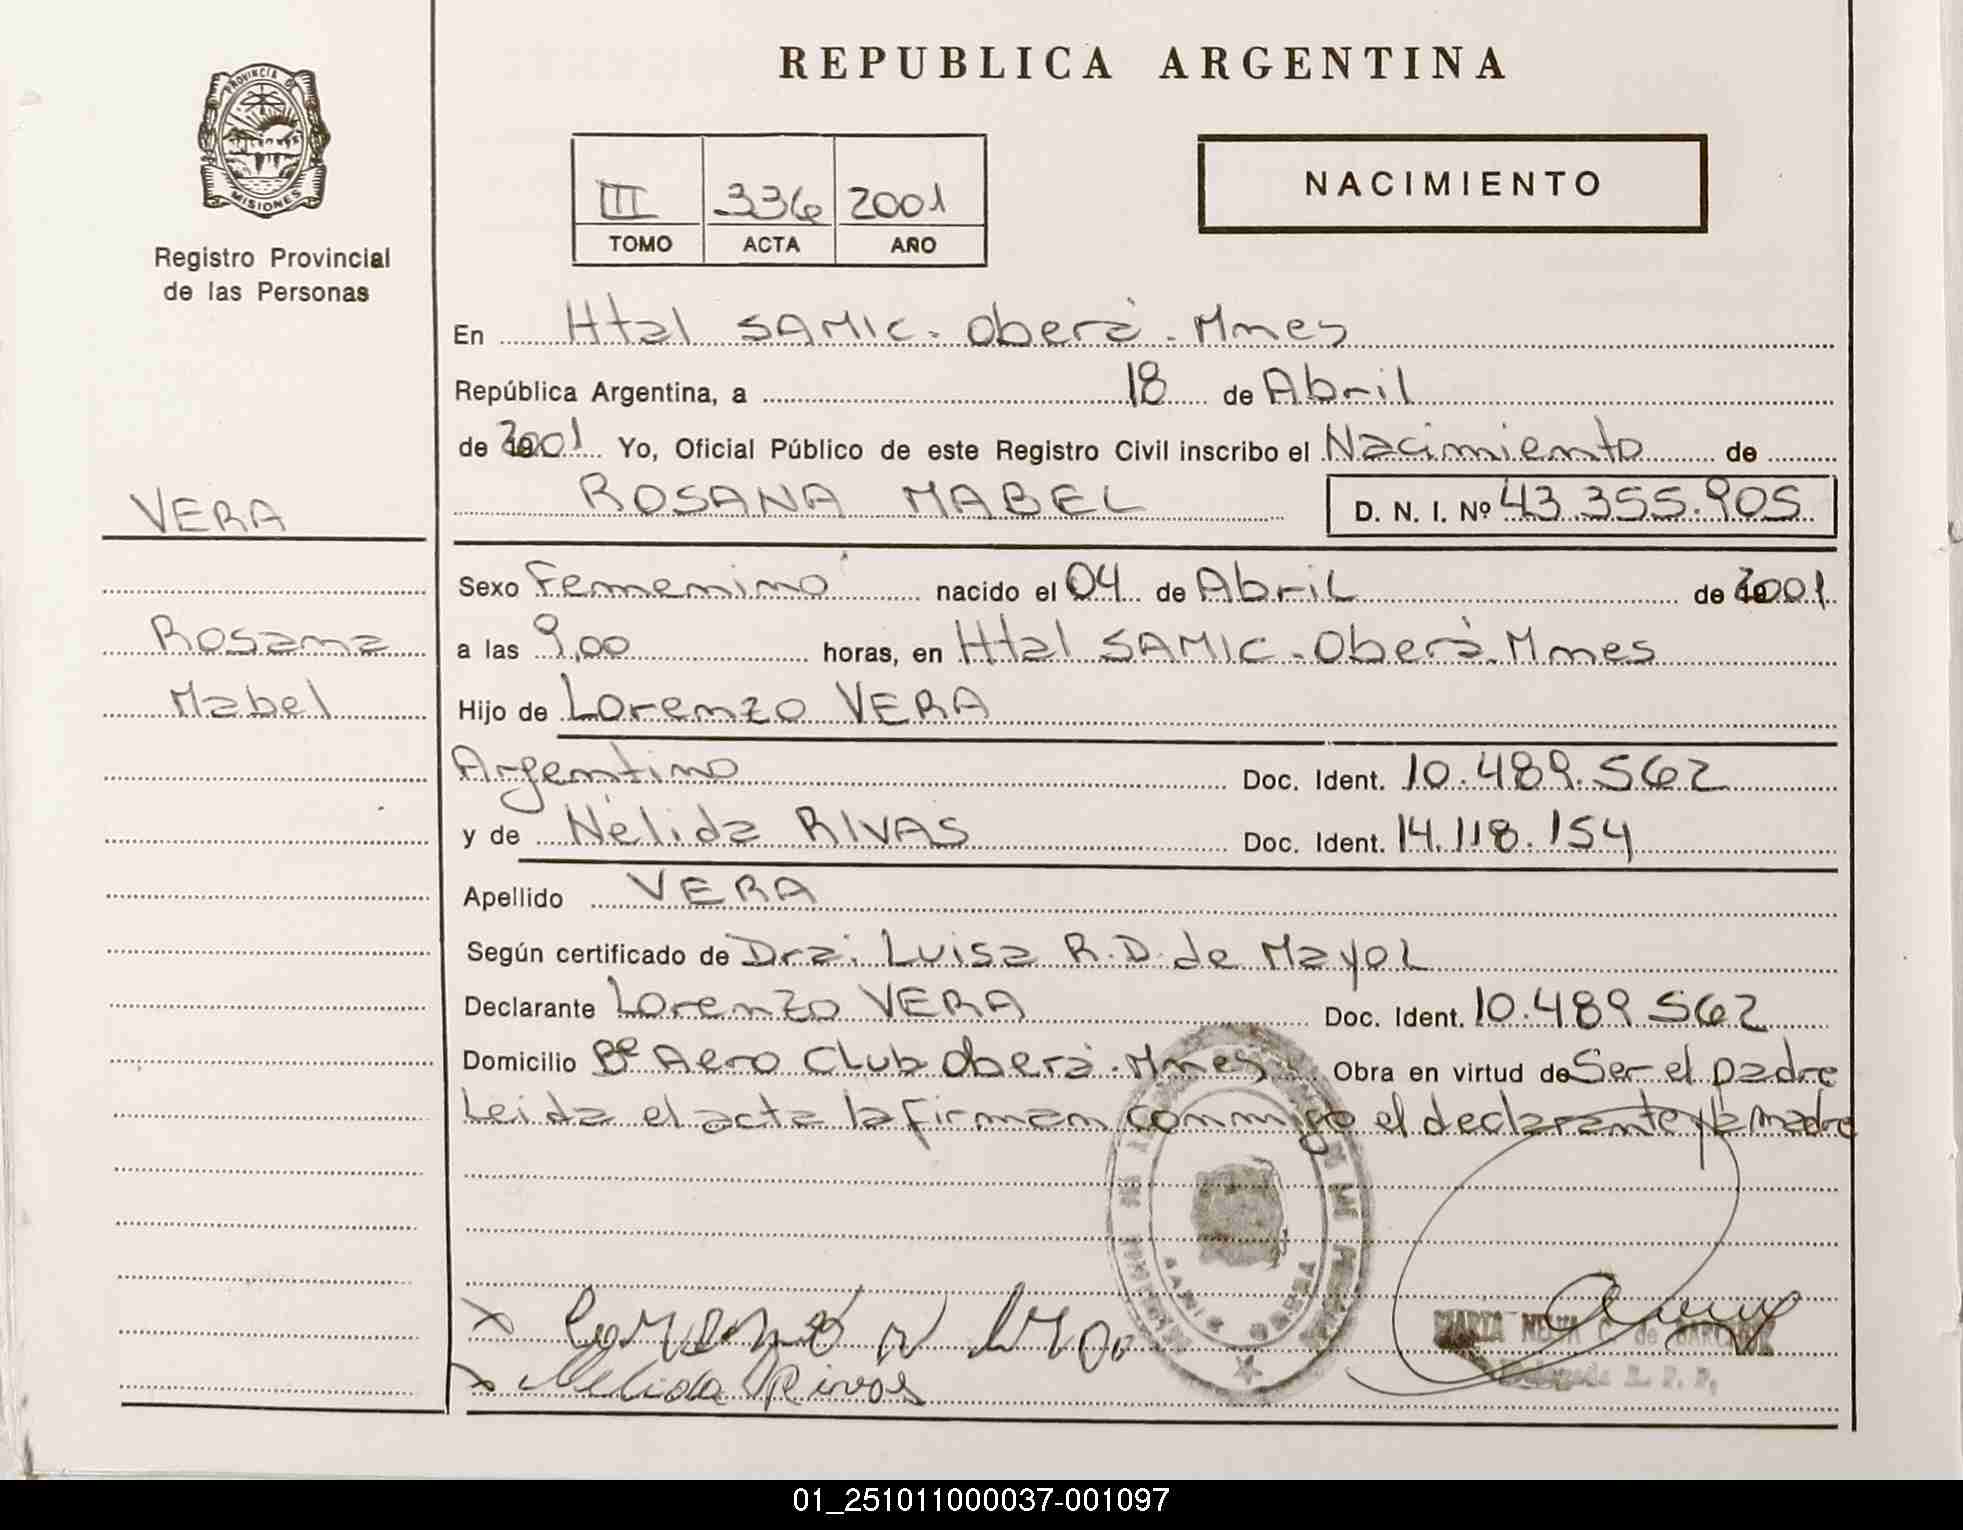 REPUBLICA ARGENTINA
PROVINCIA DE
MISIONES
Registro Provincial
de las Personas
III 336 2001
TOMO ACTA AÑO
NACIMIENTO
En Htal SAMIC - Oberá - Mnes
República Argentina, a 18 de Abril
de 2001 Yo, Oficial Público de este Registro Civil inscribo el Nacimiento de
VERA
ROSANA MABEL D. N. I. Nº 43.355.905
Sexo Femenino nacido el 04 de Abril de 2001
Rosana
a las 9,00 horas, en Htal SAMIC - Oberá - Mnes
Mabel
Hijo de Lorenzo VERA
Argentino Doc. Ident. 10.489.562
y de Nélida RIVAS Doc. Ident. 14.118.154
Apellido VERA
Según certificado de Dra: Luisa R.D. de Mayol
Declarante Lorenzo VERA Doc. Ident. 10.489.562
Domicilio Bº Aero Club Oberá - Mnes Obra en virtud de Ser el padre
Leida el acta la firman conmigo el declarante y la madre
x
x Nelida Rivas
MARTA C. de
Delegada R. P. P.
01_251011000037-001097